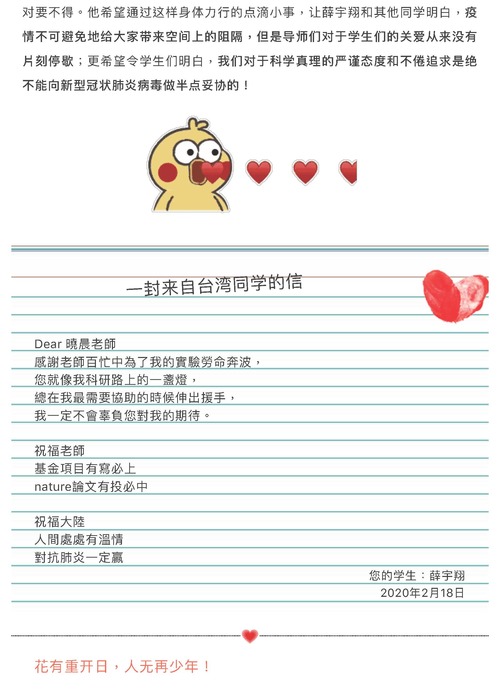 对要不得。他希望通过这样身体力行的点滴小事，让薛宇翔和其他同学明白，疫
情不可避免地给大家带来空间上的阻隔，但是导师们对于学生们的关爱从来没有
片刻停歇；更希望令学生们明白，我们对于科学真理的严谨态度和不倦追求是绝
不能向新型冠状肺炎病毒做半点妥协的！
一封来自台湾同学的信
Dear 曉晨老師
感謝老師百忙中為了我的實驗勞命奔波，
您就像我科研路上的一盞燈，
總在我最需要協助的時候伸出援手，
我一定不會辜負您對我的期待。
祝福老師
基金項目有寫必上
nature論文有投必中
祝福大陸
人間處處有溫情
對抗肺炎一定贏
您的学生：薛宇翔
2020年2月18日
花有重开日，人无再少年！